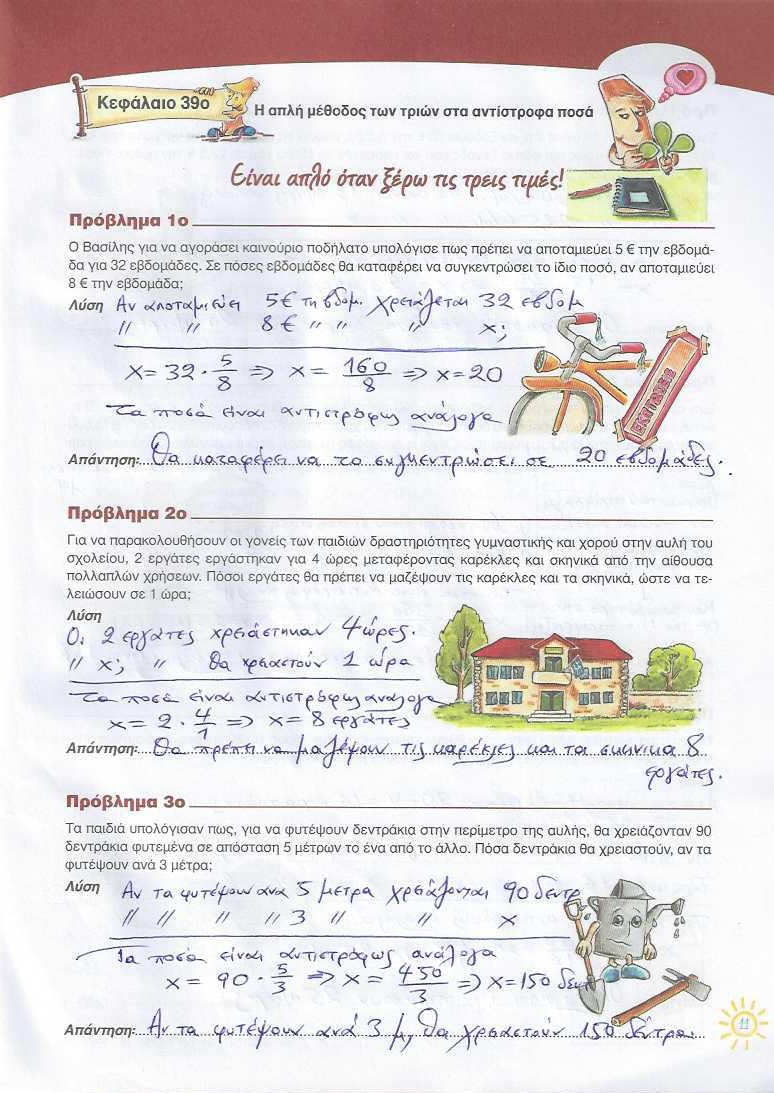 Κεφάλαιο 39ο
Η απλή μέθοδος των τριών στα αντίστροφα ποσά
Είναι απλό όταν ξέρω τις τρεις τιμές!
Πρόβλημα 1ο
Ο Βασίλης για να αγοράσει καινούριο ποδήλατο υπολόγισε πως πρέπει να αποταμιεύει 5 € την εβδομά-
δα για 32 εβδομάδες. Σε πόσες εβδομάδες θα καταφέρει να συγκεντρώσει το ίδιο ποσό, αν αποταμιεύει
8 € την εβδομάδα;
Λύση Αν αποταμιεύει 5€ τη εβδομ. χρειάζεται 32 εβδομ
// // 8 € // // // x;
x = 32 · 5/8 => x = 160/8 => x = 20
Τα ποσά είναι αντιστρόφως ανάλογα
ΕΚΠΤΩΣΕΙΣ
Απάντηση: Θα καταφέρει να το συγκεντρώσει σε 20 εβδομάδες.
Πρόβλημα 2ο
Για να παρακολουθήσουν οι γονείς των παιδιών δραστηριότητες γυμναστικής και χορού στην αυλή του
σχολείου, 2 εργάτες εργάστηκαν για 4 ώρες μεταφέροντας καρέκλες και σκηνικά από την αίθουσα
πολλαπλών χρήσεων. Πόσοι εργάτες θα πρέπει να μαζέψουν τις καρέκλες και τα σκηνικά, ώστε να τε-
λειώσουν σε 1 ώρα;
Λύση
Οι 2 εργάτες χρειάστηκαν 4 ώρες.
// x; // θα χρειαστούν 1 ώρα
Τα ποσά είναι αντιστρόφως ανάλογα
x = 2 · 4/1 => x = 8 εργάτες
Απάντηση: Θα πρέπει να μαζέψουν τις καρέκλες και τα σκηνικά 8
εργάτες.
Πρόβλημα 3ο
Τα παιδιά υπολόγισαν πως, για να φυτέψουν δεντράκια στην περίμετρο της αυλής, θα χρειάζονταν 90
δεντράκια φυτεμένα σε απόσταση 5 μέτρων το ένα από το άλλο. Πόσα δεντράκια θα χρειαστούν, αν τα
φυτέψουν ανά 3 μέτρα;
Λύση Αν τα φυτέψουν ανα 5 μετρα χρειάζονται 90 δεντρ
// // // // 3 // // x
Τα ποσά είναι αντιστρόφως ανάλογα
x = 90 · 5/3 => x = 450/3 => x = 150 δεντ
Απάντηση: Αν τα φυτέψουν ανά 3 μ, θα χρειαστούν 150 δέντρα.
11